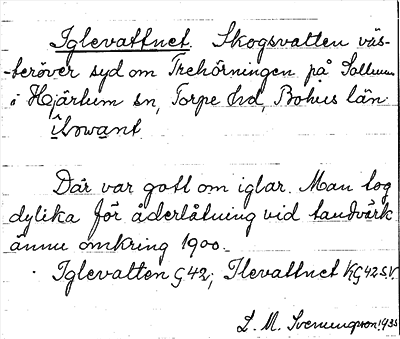 Iglevattnet. Skogsvatten väs-
-teröver syd om Trehörningen på
i Hjärtum sn, Torpe hd, Bohus län.
Där var gott om iglar. Man tog
dylika för åderlåtning vid tandvärk
ännu omkring 1900.
Iglevatten G42; Ilevattnet KG42S.V.
L. M. Svenungsson 1935